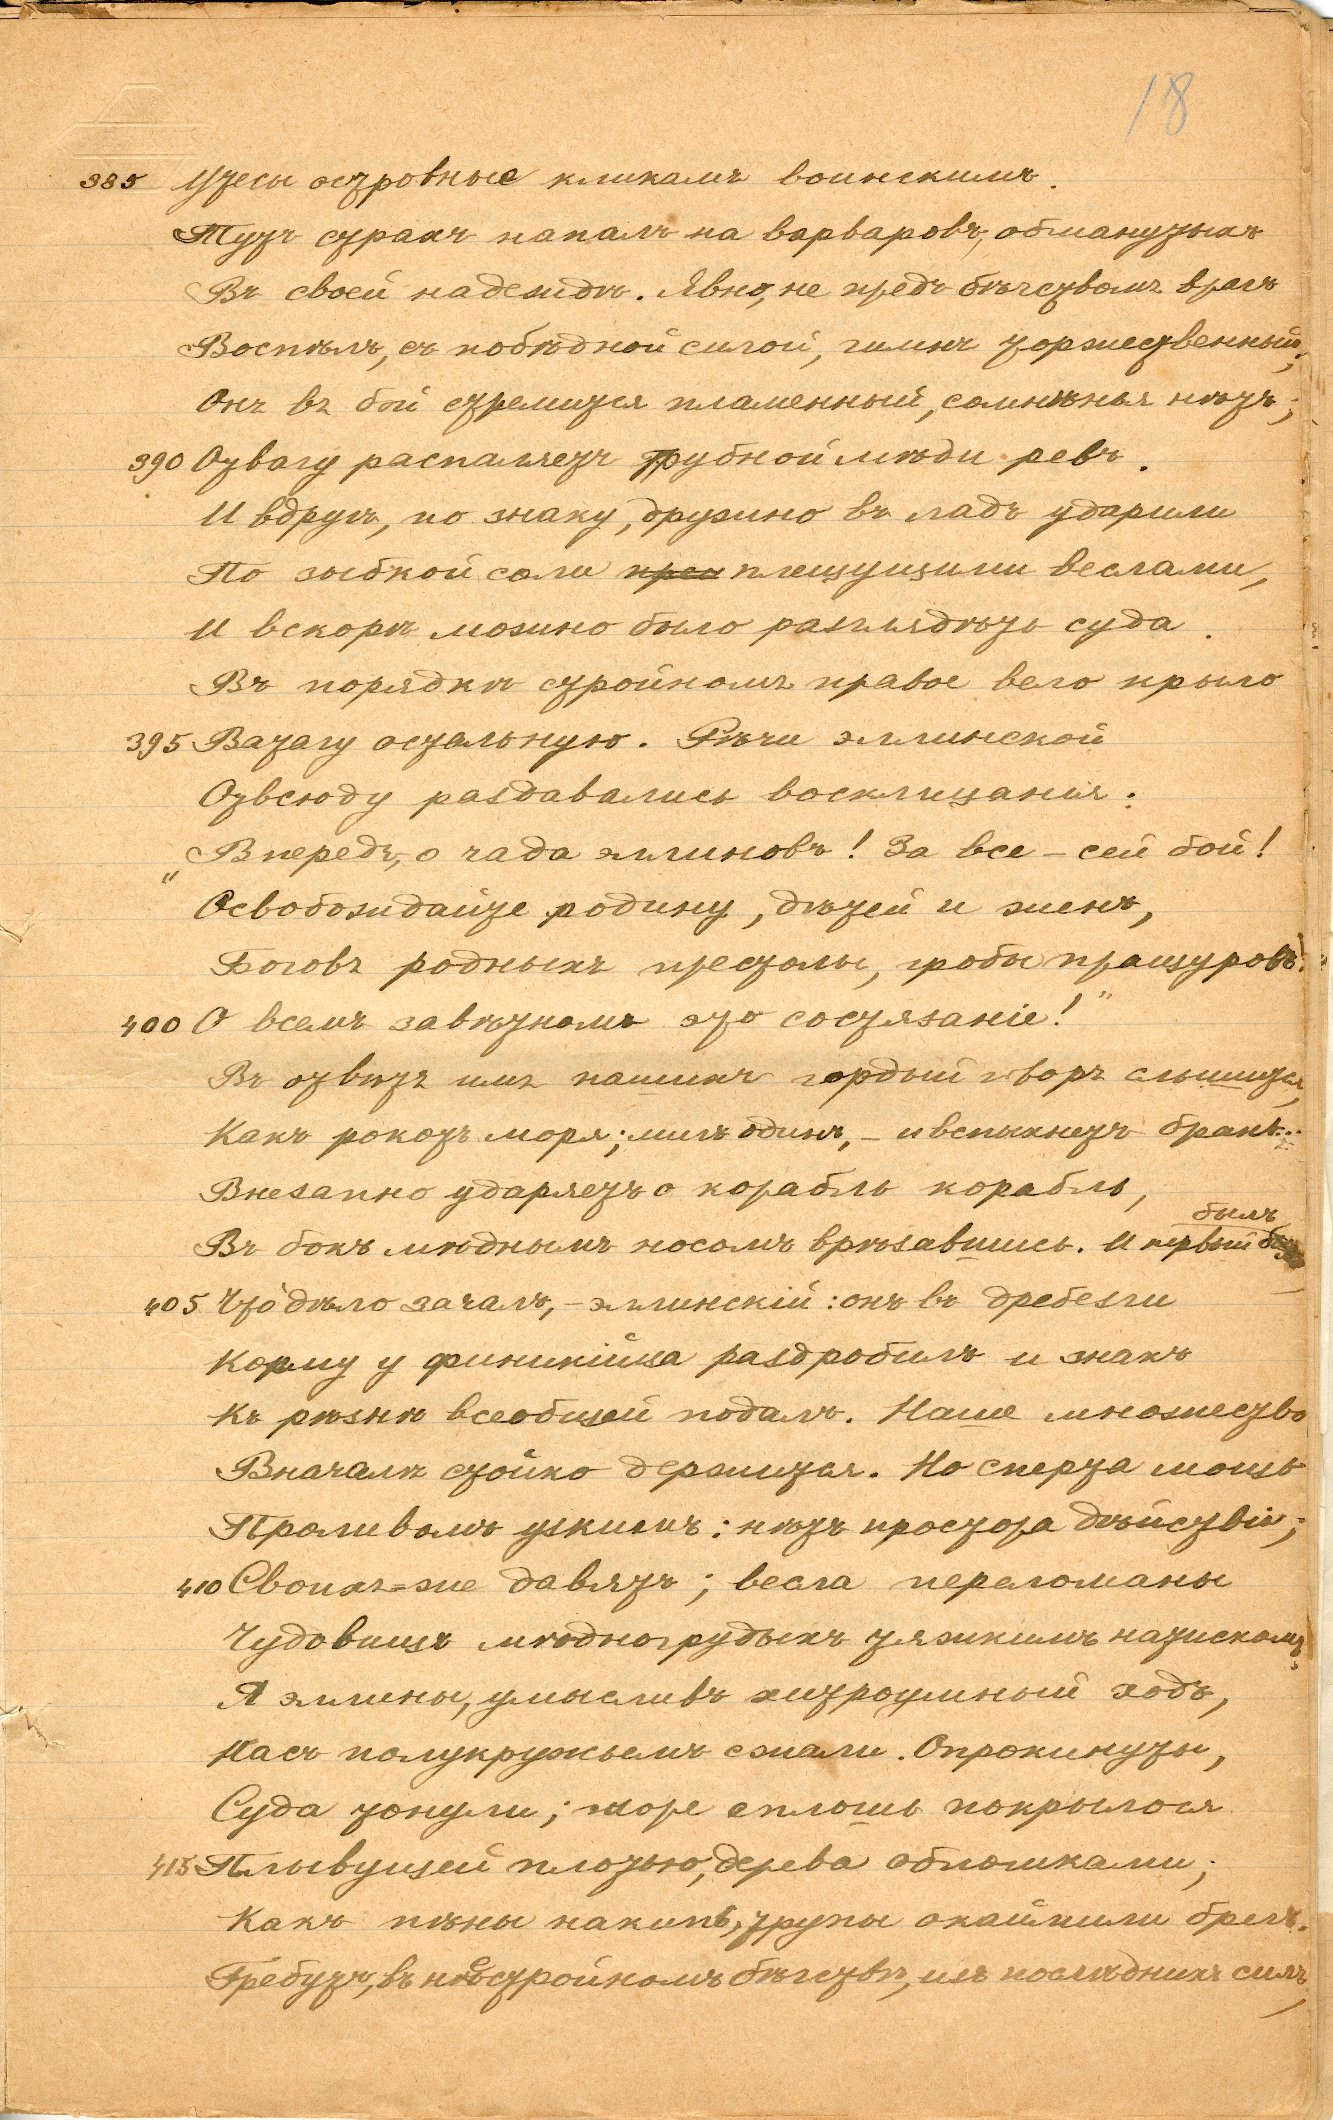 18
385 Утесы островные кликамъ воинскимъ.
Тутъ страхъ напалъ на варваровъ, обманутыхъ
Въ своей надеждѣ. Явно, не предъ бѣгствомъ врагъ
Воспѣлъ, съ побѣдной силой, гимнъ торжественный;
Онъ въ бой стремится пламенный, сомнѣнья нѣтъ;
390 Отвагу распаляетъ трубной мѣди ревъ.
И вдругъ, по знаку, дружно въ ладъ ударили
По зыбкой соли плещущими веслами,
И вскорѣ можно было разглядѣть суда.
Въ порядкѣ стройномъ правое вело крыло
395 Ватагу остальную. Рѣчи эллинской
Отвсюду раздавались восклицанія:
"Впередъ, о чада эллиновъ! За все – сей бой!
Освобождайте родину, дѣтей и женъ,
Боговъ родныхъ престолы, гробы пращуровъ!
400 О всемъ завѣтномъ это состязаніе!"
Въ отвѣтъ имъ нашихъ гордый говоръ слышится,
Какъ рокотъ моря; мигъ одинъ, – и вспыхнетъ брань...
Внезапно ударяетъ о корабль корабль,
былъ
Въ бокъ мѣднымъ носомъ врѣзавшись. И первый
405 Что́ дѣло зачалъ, – эллинскій: онъ въ дребезги
Корму у финикійца раздробилъ и знакъ
Къ рѣзнѣ всеобщей подалъ. Наше множество
Вначалѣ стойко держится. Но сперта мощь
Проливомъ узкимъ: нѣтъ простора дѣйствію;
410 Своихъ-же давятъ; весла переломаны
Чудовищъ мѣдногрудыхъ тяжкимъ натискомъ.
А эллины, умысливъ хитроумный ходъ,
Насъ полукружьемъ сжали. Опрокинуты,
Суда тонули; море сплошь покрылося
415 Плывущей плотью, дерева обломками;
Какъ пѣны накипь, трупы окаймили брегъ.
Гребутъ, въ нестройномъ бѣгствѣ, изъ послѣднихъ силъ,